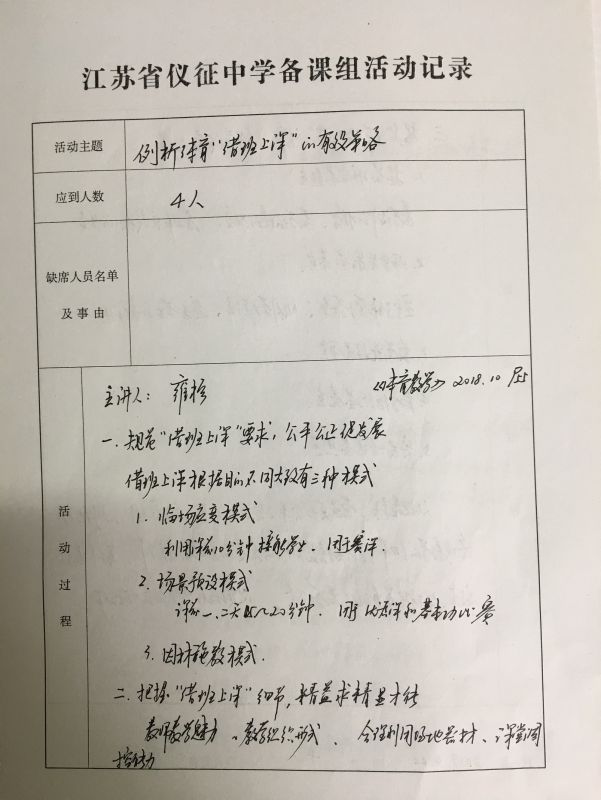 江苏省仪征中学备课组活动记录
活动主题
例析体育“借班上课”的有效策略
应到人数
4人
缺席人员名单
及事由
主讲人:
《体育教学》2018.10
一.规范“借班上课”要求,公平公正促发展
借班上课根据目的不同大致有三种模式
活动过程
1. 临场应变模式
利用课前10分钟接触学生、用于赛课.
2. 场景预设模式
课前一、二天 20分钟. 用于 课和基本功比赛
3. 因材施教模式.
二.把握“借班上课”细节,精益求精显才能
教师教学魅力、教学组织形式、合理利用场地器材、课堂调
控能力